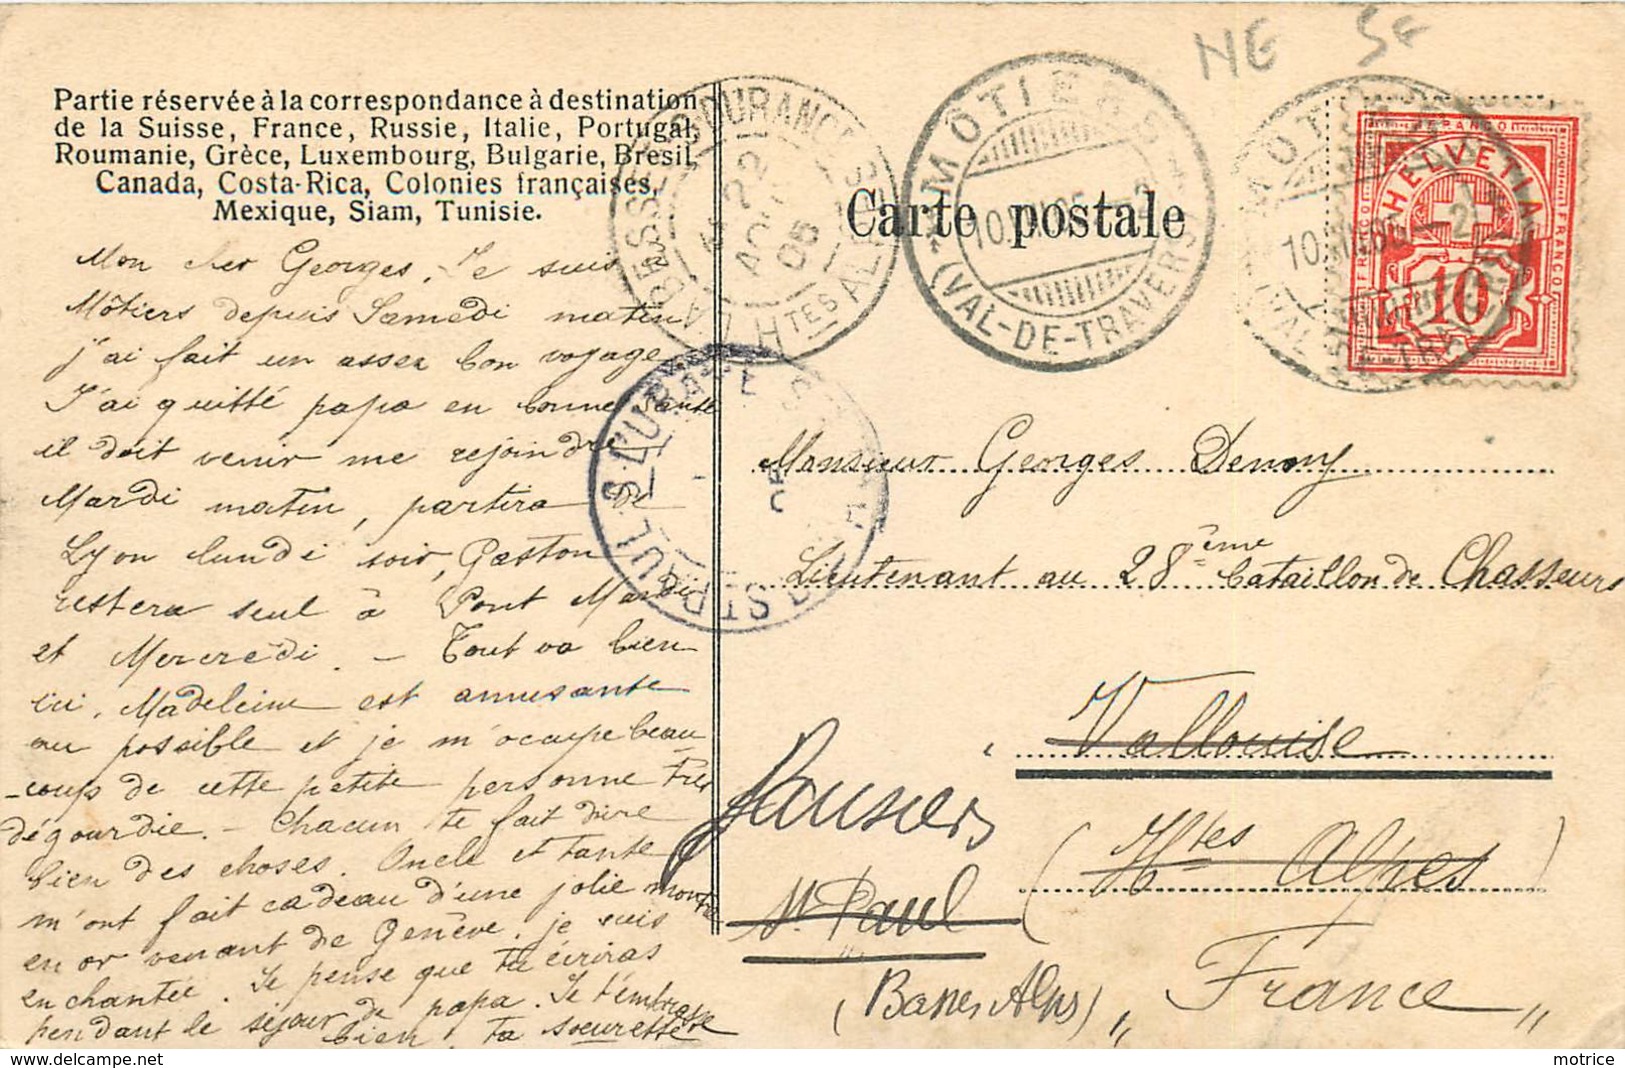 NE
Partie réservée à la correspondance à destination
de la Suisse, France, Russie, Italie, Portugal,
Roumanie, Grèce, Luxembourg, Bulgarie, Bresil,
Canada, Costa-Rica, Colonies françaises,
Mexique, Siam, Tunisie.
Mon cher Georges, Je suis
Môtiers depuis Samedi matin
j'ai fait un assez bon voyage
J'ai quitté papa en bonne santé
il doit venir me rejoindre
Mardi matin, partira de
Lyon lundi soir, Gaston
restera seul à Pont Mardi
et Mercredi. – Tout va bien
ici. Madeleine est amusante
au possible et je m'occupe beau-
-coup de cette petite personne très
dégourdie. – Chacun te fait dire
bien des choses. Oncle et tante
m'ont fait cadeau d'une jolie montre
en or venant de Genève. je suis
enchantée. Je pense que tu écriras
pendant le séjour de papa. Je t'embrasse
bien, ta soeurette
LABESSÉE S. DURANCE
22
AOUT
05
Htes ALPES
MÔTIERS
10. 05 – 2
(VAL-DE-TRAVERS)
Carte postale
MÔTIERS
10. – 2
(VAL-DE-TRAVERS)
FRANCO
HELVETIA
FRANCO
FRANCO
10
ST PAUL S. UBAYE
05
Monsieur Georges Denomy
Lieutenant au 28ème bataillon de Chasseurs
Vallouise
Jausiers
(Htes Alpes)
St Paul
(Basses Alpes)
„ France „
motrice